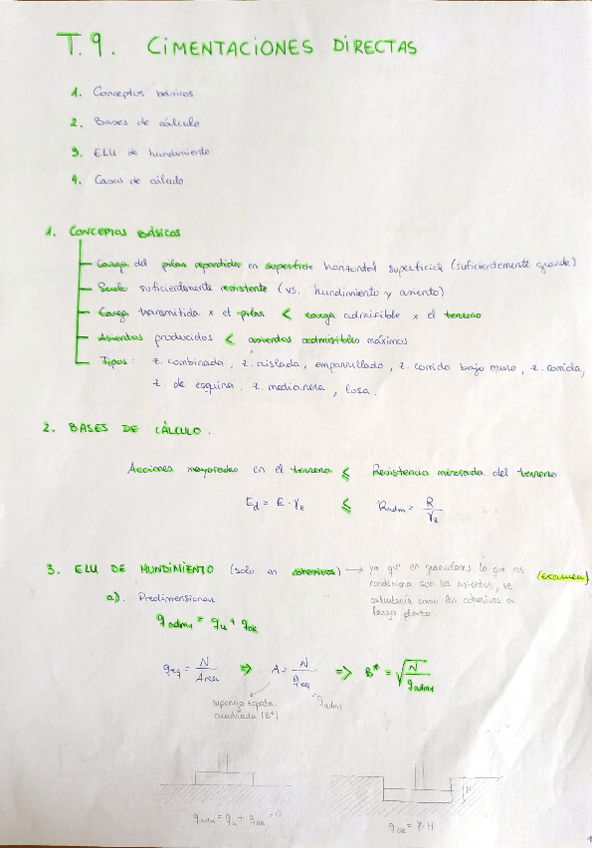 T.9. CIMENTACIONES DIRECTAS
1. Conceptos básicos
2. Bases de cálculo
3. ELU de hundimiento
4. Casos de cálculo
1. CONCEPTOS BÁSICOS
Carga del pilar repartida en superficie horizontal superficial (suficientemente grande)
Suelo suficientemente resistente (vs. hundimiento y asiento)
Carga transmitida x el pilar < carga admisible x el terreno
Asientos producidos < asientos admisibles máximos
Tipos: z. combinada, z. aislada, emparrillado, z. corrida bajo muro, z. corrida,
z. de esquina, z. medianera, losa.
2. BASES DE CÁLCULO.
Acciones mayoradas en el terreno ≤ Resistencia minorada del terreno
Ed = E · γE ≤ Radm = R / γR
3. ELU DE HUNDIMIENTO (solo en cohesivos) → ya q' en granulares lo que nos (examen)
condiciona son los asientos, se
calcularía como los cohesivos a
largo plazo.
a). Predimensionar
q adm1 = qu + q0k
qeq = N / Area ⇒ A = N / qeq ⇒ B* = √(N / q adm1)
supongo zapata = q adm1
cuadrada (B*)
q adm = qu + q0k = 0
H
q0k = γ · H
1